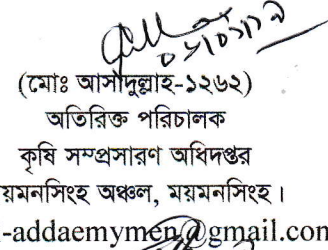 (মোঃ আসাদুল্লাহ-১২৬২)
অতিরিক্ত পরিচালক
কৃষি সম্প্রসারণ অধিদপ্তর
য়মনসিংহ অঞ্চল, ময়মনসিংহ।
-addaemymen@gmail.con